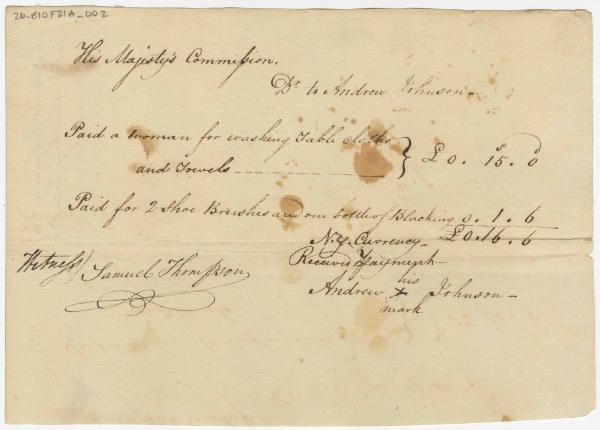 2b-B10F21A_002
His Majesty's Commission.
Dr to Andrew Johnson
Paid a woman for washing Table cloths
and Towels } £0. 15. 0
Paid for 2 Shoe Brushes and one bottle of Blacking 0. 1. 6
N.Y. Currency £0.16.6
Received Payment
Witness Samuel Thompson
his
Andrew + Johnson
mark